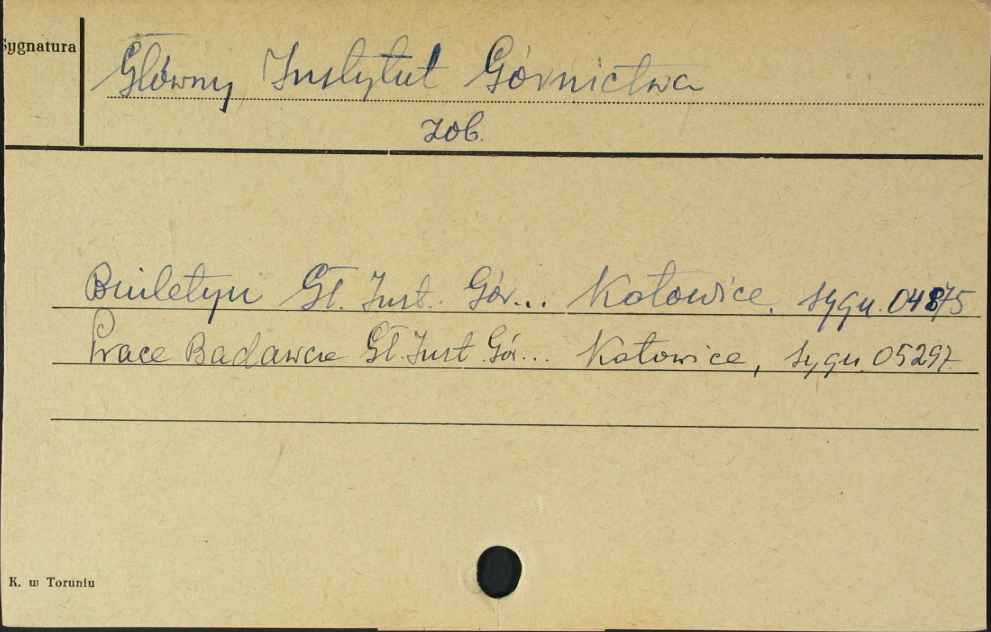 Sygnatura
Główny Instytut Górnictwa
zob.
Biuletyn Gł. Inst. Gór... Katowice, sygn. 04875
Prace Badawcze Gł. Inst. Gór... Katowice, sygn. 05297
K. w Toruniu